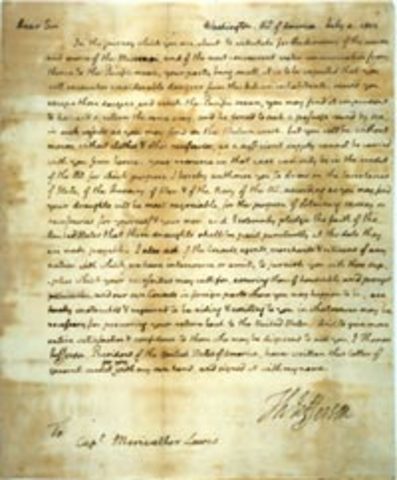 Dear Sir Washington. US. of America. July 4. 1803
In the journey which you are about to undertake for the discovery of the course
and source of the Missouri, and of the most convenient water communication from
thence to the Pacific ocean, your party being small, it is to be expected that you
will encounter considerable dangers from the Indian inhabitants. should you
escape those dangers and reach the Pacific ocean, you may find it imprudent
to hazard a return the same way, and be forced to seek a passage round by sea,
in such vessels as you may find on the Western coast. but you will be without
money, without clothes, & other necessaries; as a sufficient supply cannot be carried
with you from hence. your resource in that case can only be in the credit
of the US. for which purpose I hereby authorise you to draw on the Secretaries
of State, of the Treasury, of War & of the Navy of the US. according as you may find
your draughts will be most negociable, for the purpose of obtaining money or
necessaries for yourself & your men: and I solemnly pledge the faith of the
United States that these draughts shall be paid punctually at the date they
are made payable. I also ask of the Consuls, agents, merchants & citizens of any
nation with which we have intercourse or amity, to furnish you with those sup-
plies which your necessities may call for, assuring them of honorable and prompt
retribution. and our own Consuls in foreign parts where you may happen to be, are
hereby instructed & required to be aiding & assisting to you in whatsoever may be
necessary for procuring your return back to the United States. And to give more
entire satisfaction & confidence to those who may be disposed to aid you, I Thomas
Jefferson, President of the United States of America, have written this letter of
general credit for you with my own hand, and signed it with my name.
Th: Jefferson
To
Capt. Meriwether Lewis